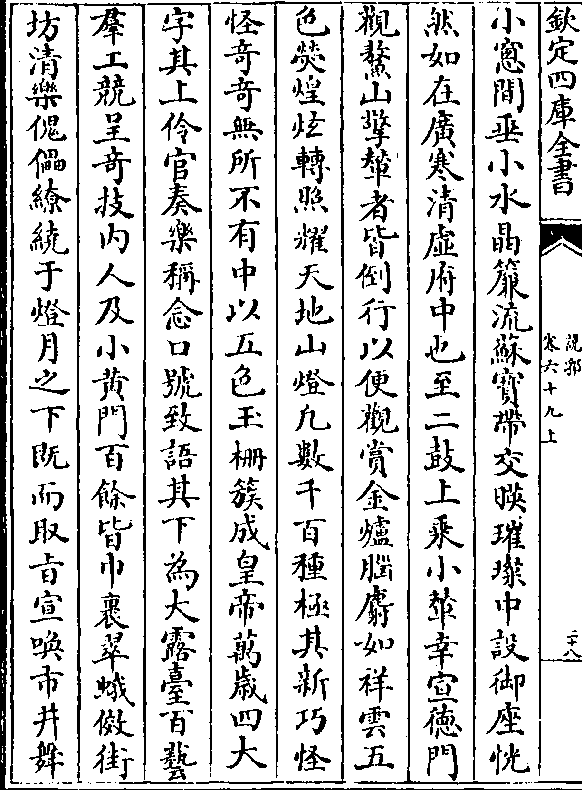 欽定四庫全書
說郛
卷六十九上
二十八
小窻間垂小水晶簾流蘇寶帶交暎璀璨中設御座恍
然如在廣寒清虛府中也至二鼓上乘小輦幸宣德門
觀鰲山擎輦者皆倒行以便觀賞金爐腦麝如祥雲五
色熒煌炫轉照耀天地山燈凡數千百種極其新巧怪
怪奇奇無所不有中以五色玉柵簇成皇帝萬歲四大
字其上伶官奏樂稱念口號致語其下為大露臺百藝
羣工競呈奇技内人及小黄門百餘皆巾裹翠蛾傚街
坊清樂傀儡繚繞于燈月之下既而取旨宣喚市井舞